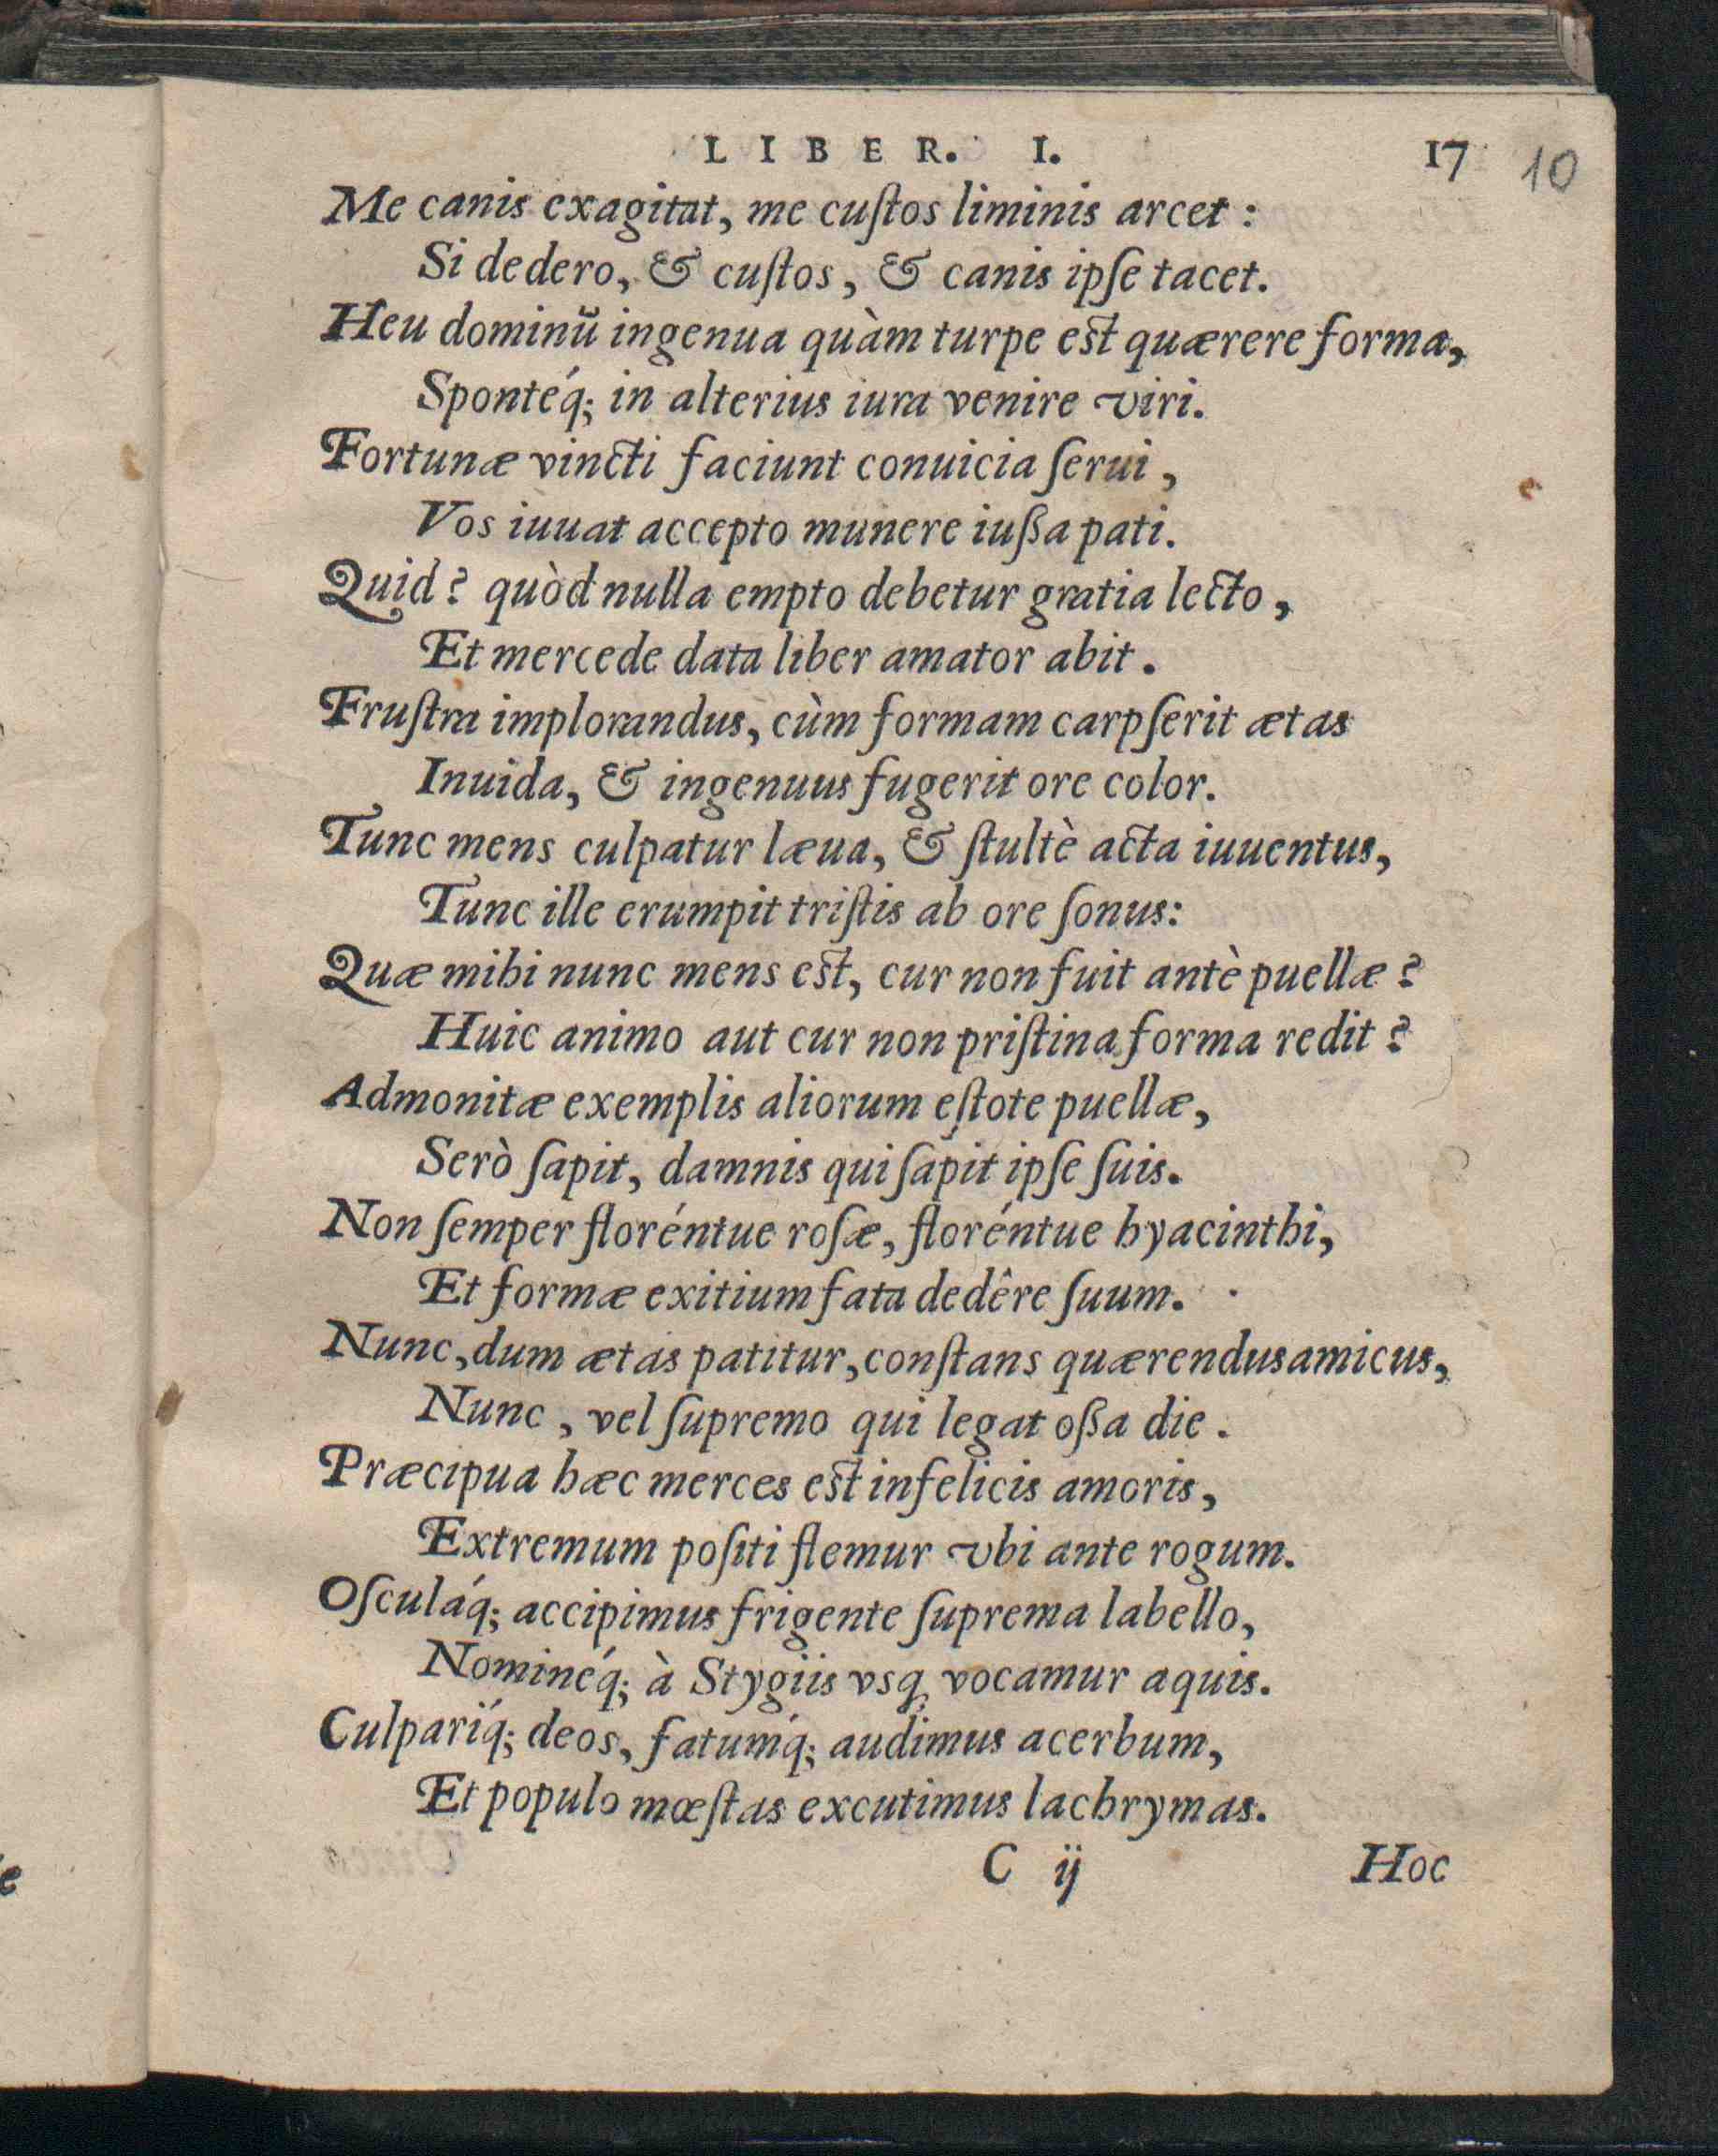 LIBER. I. 17 10
Me canis exagitat, me cuſtos liminis arcet :
Si dedero, & cuſtos, & canis ipſe tacet.
Heu dominũ ingenua quàm turpe est quærere forma,
Sponteq́; in alterius iura venire viri.
Fortunæ vincti faciunt conuicia ſerui,
Vos iuuat accepto munere iußa pati.
Quid? quòd nulla empto debetur gratia lecto,
Et mercede data liber amator abit.
Fruſtra implorandus, cùm formam carpſerit ætas
Inuida, & ingenuus fugerit ore color.
Tunc mens culpatur læua, & ſtultè acta iuuentus,
Tunc ille erumpit triſtis ab ore ſonus:
Quæ mihi nunc mens est, cur non fuit antè puellæ?
Huic animo aut cur non priſtina forma redit?
Admonitæ exemplis aliorum eſtote puellæ,
Serò ſapit, damnis qui ſapit ipſe ſuis.
Non ſemper floréntue roſæ, floréntue hyacinthi,
Et formæ exitium fata dedêre ſuum.
Nunc, dum ætas patitur, conſtans quærendus amicus,
Nunc, vel ſupremo qui legat oßa die.
Præcipua hæc merces est infelicis amoris,
Extremum poſiti flemur vbi ante rogum.
Oſculaq́; accipimus frigente ſuprema labello,
Nomineq́; à Stygiis vsq; vocamur aquis.
Culpariq́; deos, fatumq́; audimus acerbum,
Et populo mœſtas excutimus lachrymas.
C ij Hoc